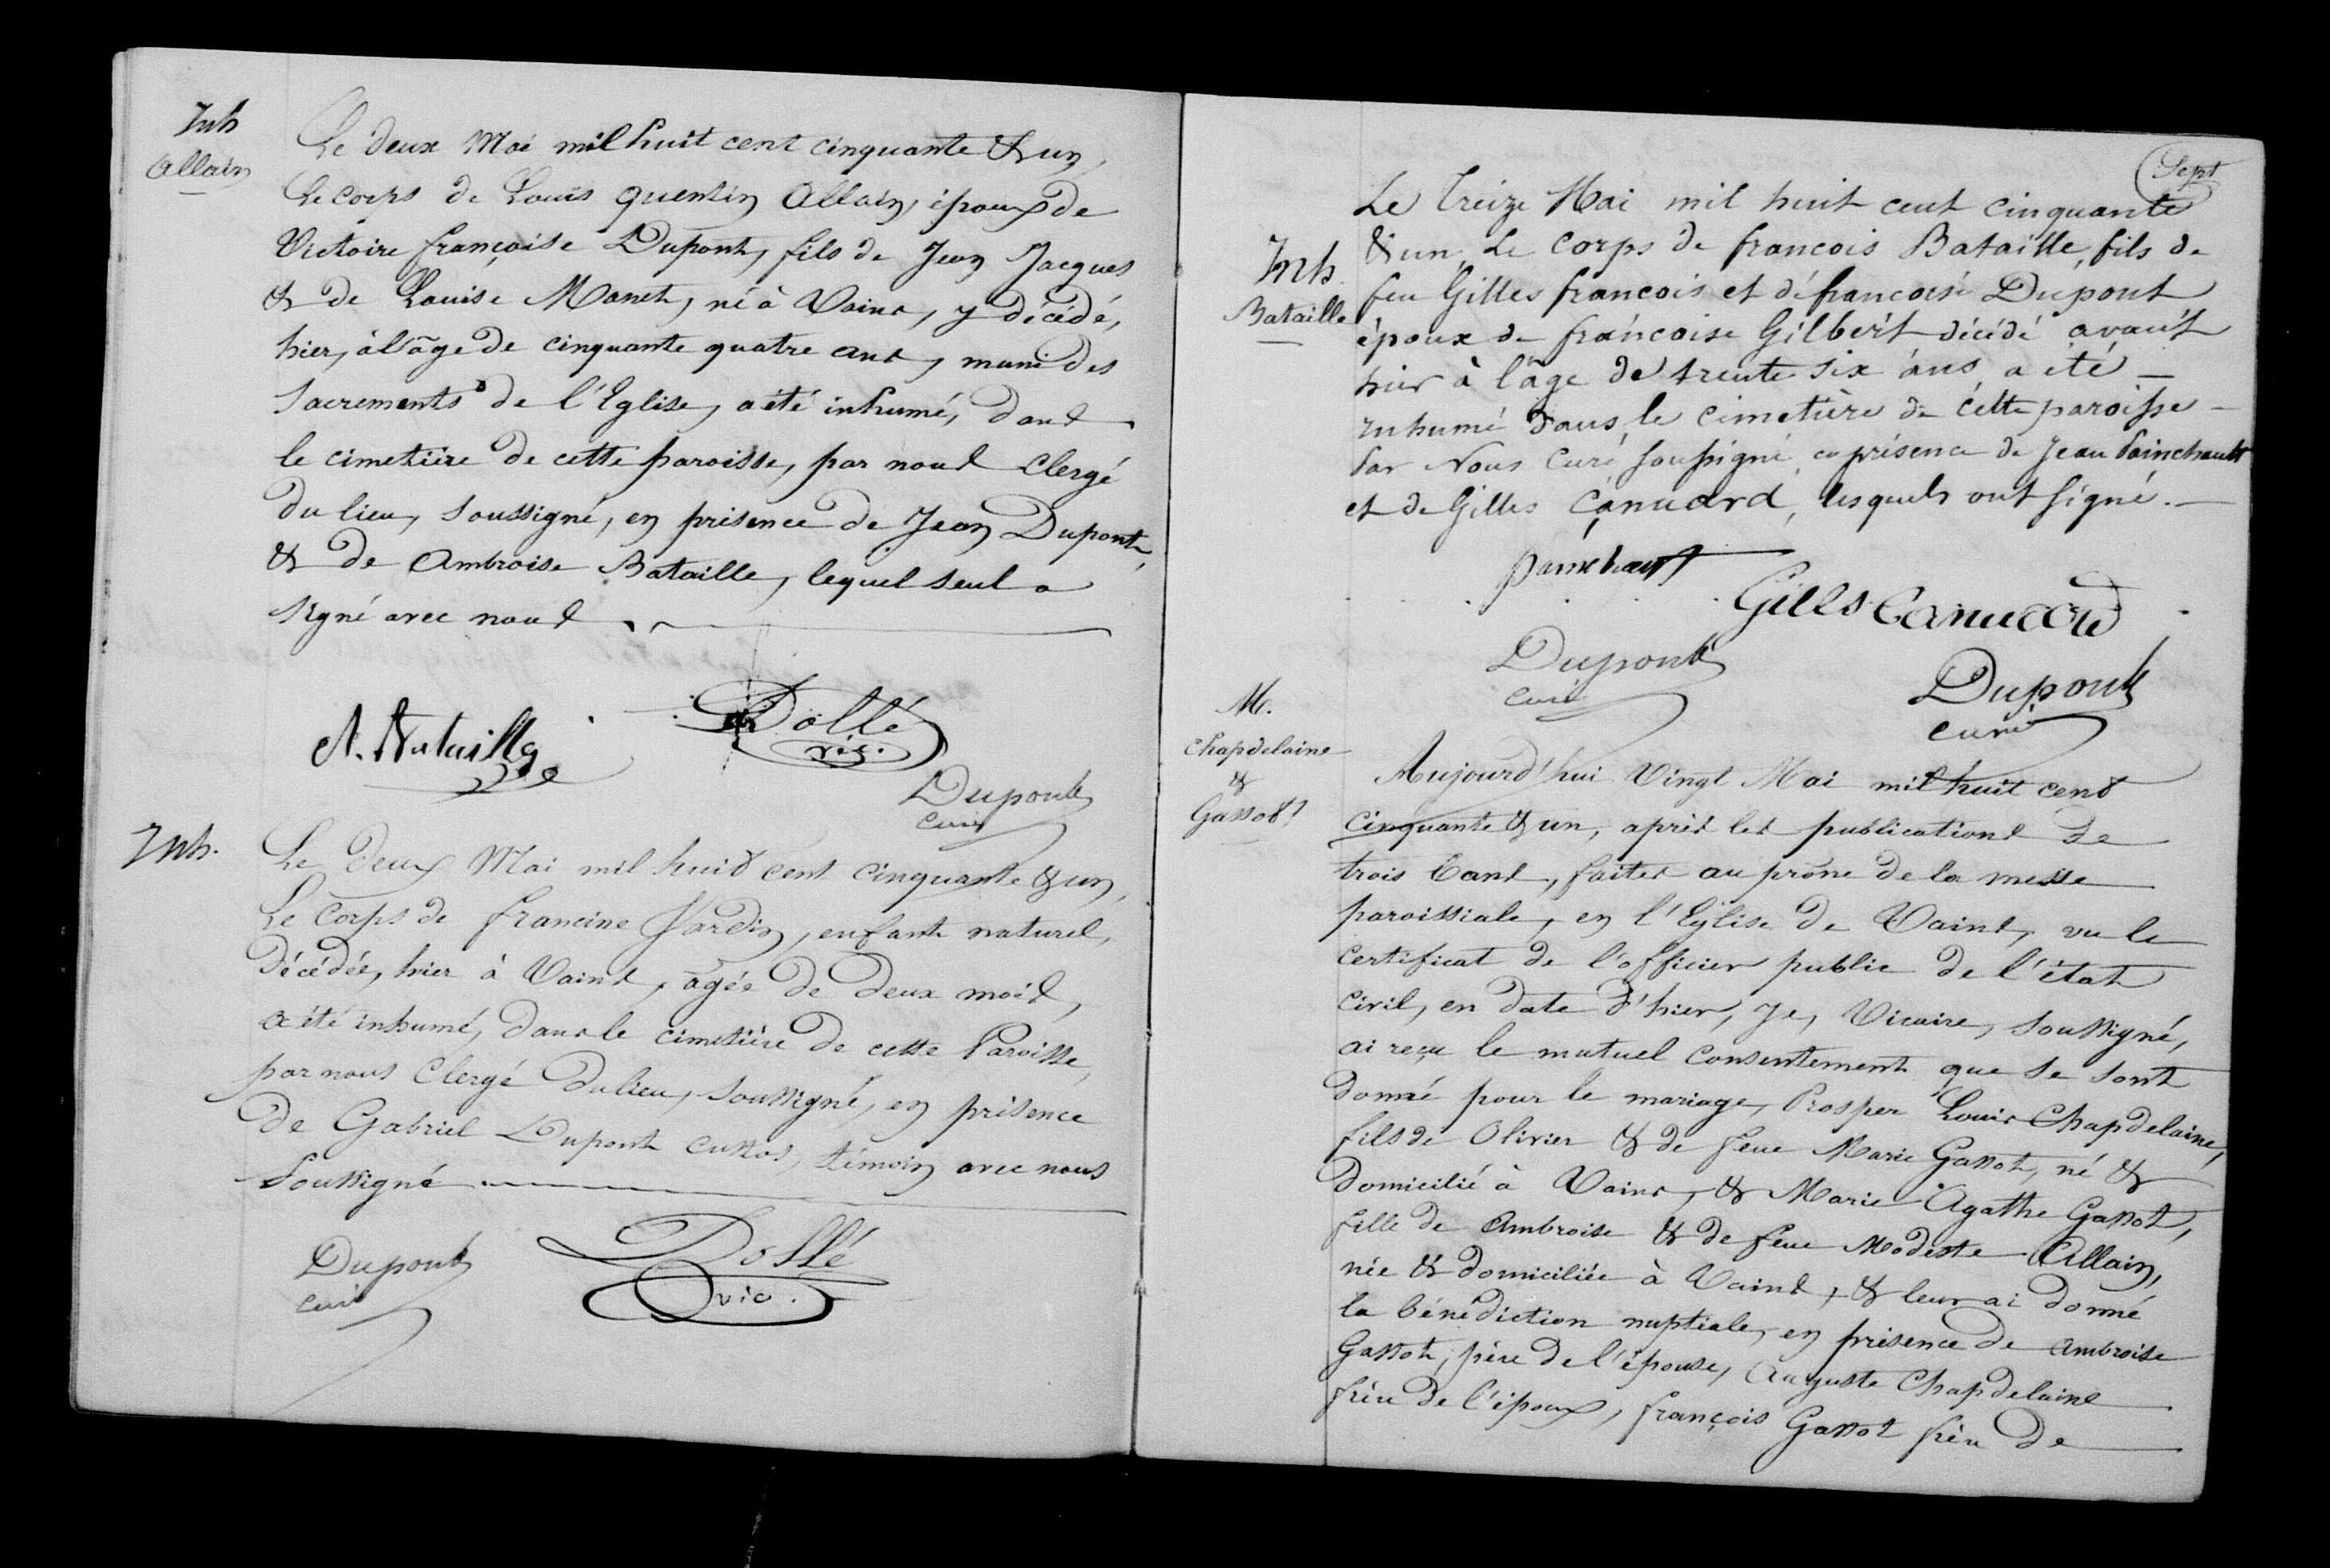 Inh
Allain
Le deux Mai mil huit cent cinquante & un,
Le corps de Louis Quentin Allain, époux de
Victoire françoise Dupont, fils de Jean Jacques
& de Louise Manet, né à Vains, y décédé,
hier, à l'âge de cinquante quatre ans, muni des
Sacrements de l'Eglise, a été inhumé, dans
le cimetière de cette paroisse, par nous Clergé
du lieu, soussigné, en présence de Jean Dupont,
& de Ambroise Bataille, lequel seul a
signé avec nous
A. Bataille
Dollé
vic.
Dupont
curé
Inh.
Le deux Mai mil huit cent cinquante & un,
Le Corps de francine Jardin, enfant naturel,
décédée, hier à Vains, agée de deux mois,
a été inhumé, dans le cimetière de cette Paroisse,
par nous Clergé du lieu, soussigné, en présence
de Gabriel Dupont custos, témoin avec nous
Soussigné
Dupont
curé
Dollé
vic.
Sept
Inh
Bataille
Le treize Mai mil huit cent cinquante
& un, Le Corps de francois Bataille, fils de
feu Gilles francois et de francoise Dupont
époux de francoise Gilbert décédé avant
hier à l'âge de trente six ans a été
inhumé dans le cimetière de cette paroisse
Par Nous Curé soussigné en présence de Jean Painchault
et de Gilles Canuard, lesquels ont signé.
Painchault
Gilles Canuard
Dupont
curé
Dupont
curé
M.
Chapdelaine
&
Gassot
Aujourd'hui Vingt Mai mil huit cent
cinquante & un, après les publications de
trois bans, faites au prône de la messe
paroissiale, en l'Eglise de Vains, vu le
certificat de l'officier public de l'état
civil, en date d'hier, Je, Vicaire, soussigné,
ai reçu le mutuel consentement que se sont
donné pour le mariage, Prosper Louis Chapdelaine,
fils de Olivier & de feue Marie Gassot, né &
domicilié à Vains, & Marie Agathe Gassot,
fille de Ambroise & de feue Modeste Allain,
née & domiciliée à Vains, & leur ai donné
la bénédiction nuptiale, en présence de Ambroise
Gassot, père de l'épouse, Auguste Chapdelaine
frère de l'époux, françois Gassot frère de